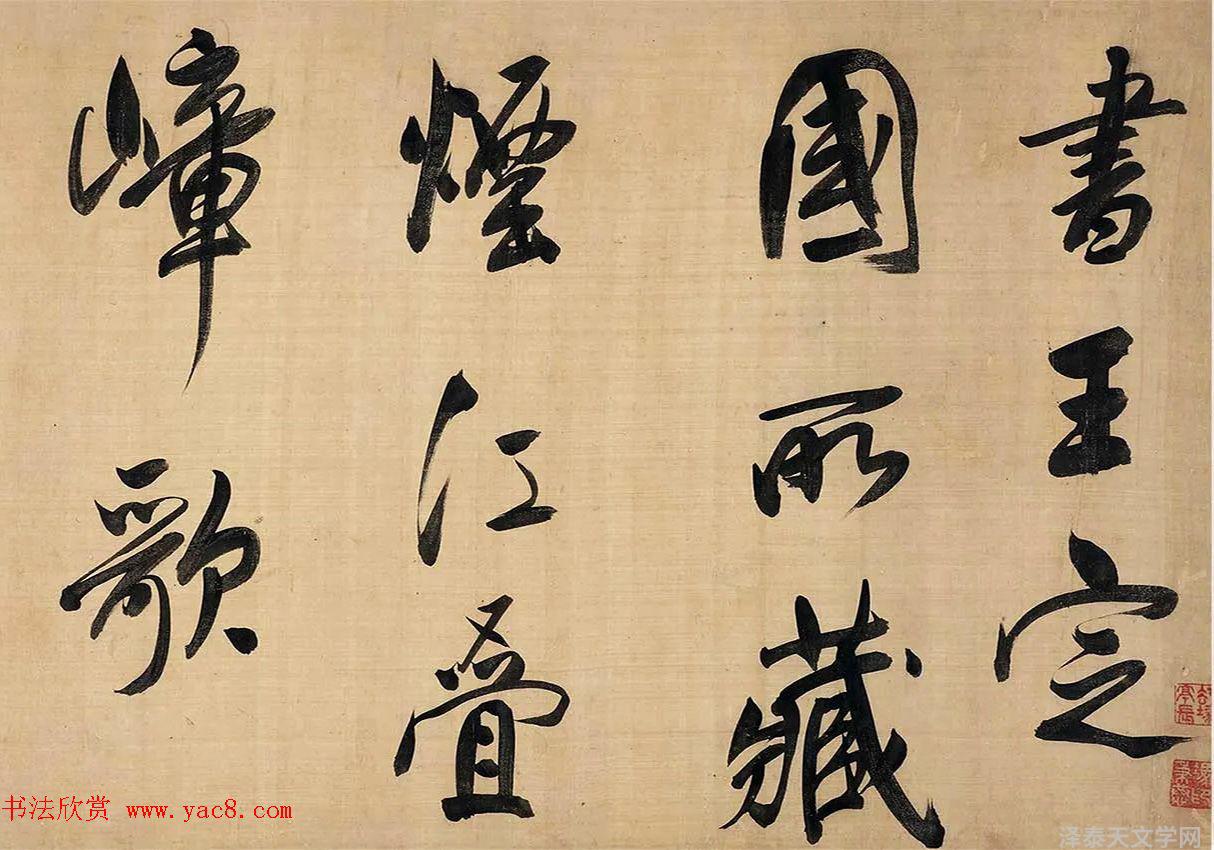 書王定
國所藏
煙江叠
嶂歌
书法欣赏 www.yac8.com
泽泰天文学网